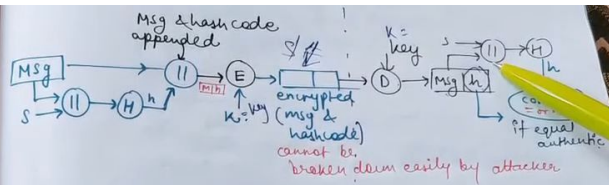 Msg & hash code
appended
Msg
||
S
||
H
h
M h
E
K = key
encrypted
(msg &
hashcode)
cannot be
broken down easily by attacker
K =
key
D
Msg h
S
||
H
h
if equal
authentic